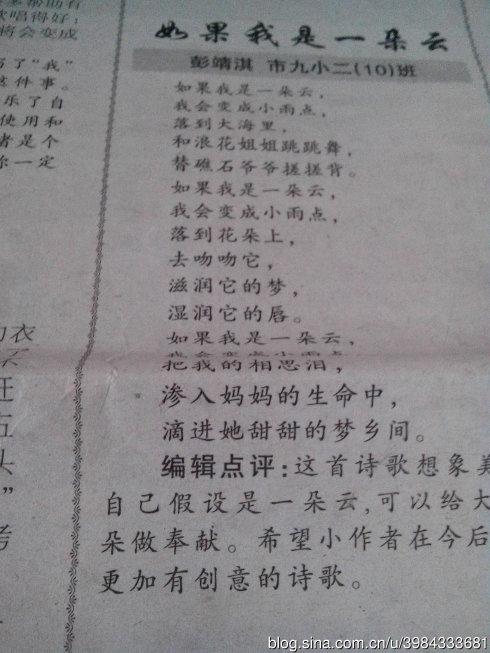 如果我是一朵云
彭靖淇 市九小二(10)班
如果我是一朵云，
我会变成小雨点，
落到大海里，
和浪花姐姐跳跳舞，
替礁石爷爷搓搓背。
如果我是一朵云，
我会变成小雨点，
落到花朵上，
去吻吻它，
滋润它的梦，
湿润它的唇。
如果我是一朵云，
我会变成小雨点
把我的相思泪，
渗入妈妈的生命中，
滴进她甜甜的梦乡间。
编辑点评:这首诗歌想象美
自己假设是一朵云,可以给大
朵做奉献。希望小作者在今后
更加有创意的诗歌。
歌唱得好；
将会变成
写了“我”
这件事。
乐了自
使用和
者是个
你一定
衣
五
头
”
考
blog.sina.com.cn/u/3984333681